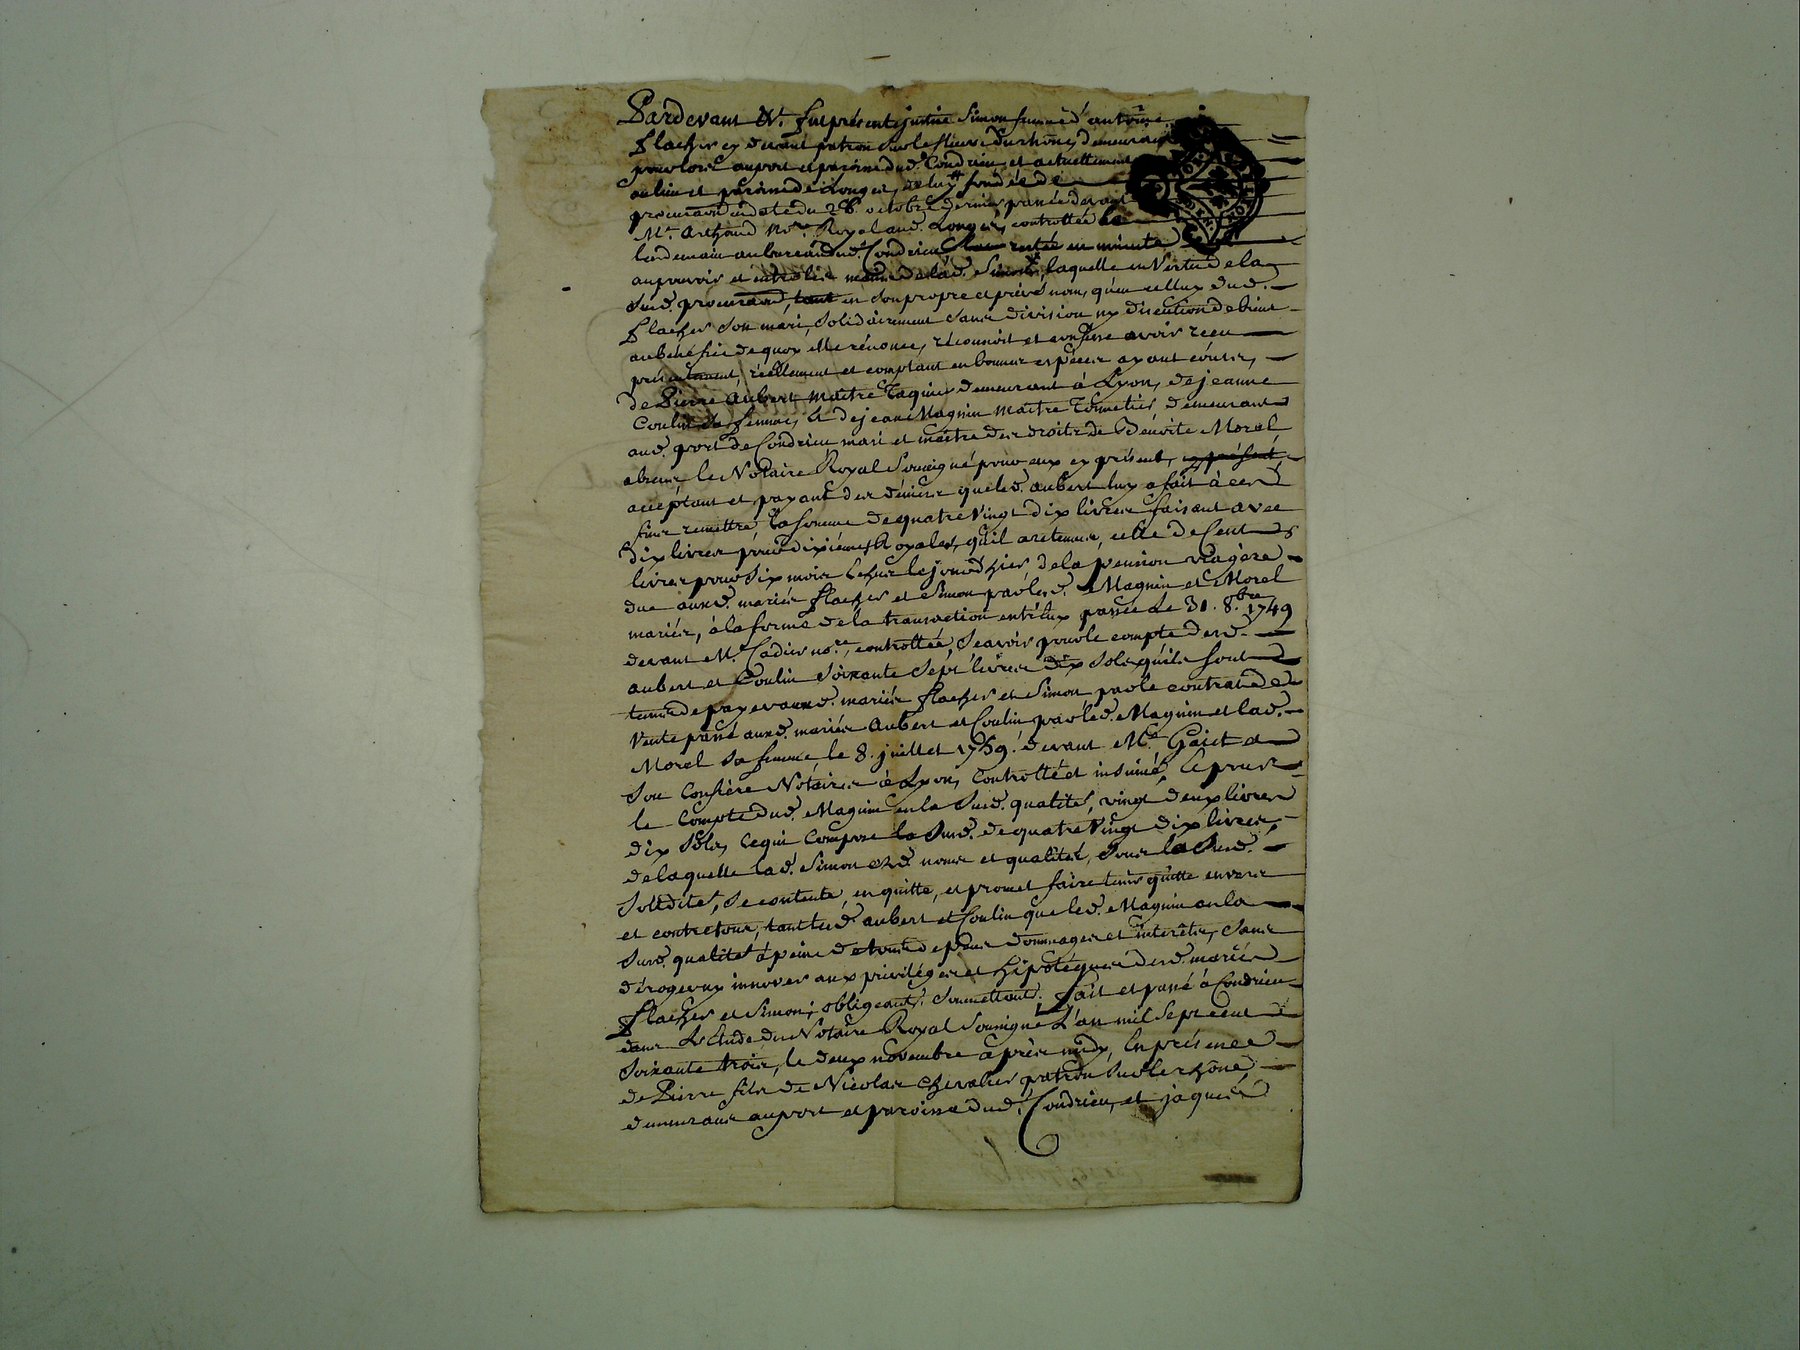 Pardevant Nre. fut présente justine Simon femme d'antoine
flacher cy devant patron sur le fleuve du rhône, demeurant
pour lors au port et paroisse dud. Condrieu, et actuellement
au lieu et paroisse de Longes, de luy fondée de
procuraõn en date du 28. octobre dernier passée devant
Me. Arthaud Nore. Royal aud. Longes, controllée le
lendemain au bureau dud. Condrieu, restée en minute
au pouvoir et entre les mains de lad. Simon, laquelle en Vertu de la
sud. procuraõn, tant en son propre et privé nom, qu'en celluy dud.
flacher son mari, solidairement sans division ny discution de biens
au bénéfice de quoy elle rénonce, réconnoit et confesse avoir reçu
présentement, réellement et comptant en bonnes espèces ayant cours,
de Pierre Aubert maitre demeurant à Lyon, de jeanne
Coulin sa femme, & de jean Magnin maitre Tonnelier demeurant
aud. port de Condrieu mari et maitre des droits de Benoite Morel
absens, le Notaire Royal soussigné pour eux cy présent,
acceptant et payant des déniers que led. aubert luy a fait à ces
fins remettre, la somme de quatre vingt dix livres faisant avec
dix livres pour dixiémes Royales, qu'il a retenues, celle de Cent
livres pour six mois échus le jour d'hier, de la pension viagère
due auxd. mariés flacher et Simon par lesd. Magnin et Morel
mariés, à la forme de la transaction entr'eux passée le 31. 8.bre 1749
devant Me. Cadier nore., controllée, sçavoir pour le compte desd.
aubert et Coulin soixante sept livres dix sols qu'ils sont
tenus de payer auxd. mariés flacher et Simon par le contrat de
Vente passé auxd. mariés Aubert et Coulin par led. Magnin et lad.
Morel sa femme le 8. juillet 1759. devant Me. Gaiet et
son Confrère Notaires à Lyon, controllé et insinué, Et pour
le Compte dud. Magnin en la sud. qualité, vingt deux livres
dix sols, ce qui Compose la sud. de quatre vingt dix livres,
de laquelle lad. Simon esd. noms et qualités, sous la sud.
solidité, se contente, en quitte, et promet faire tenir quitte envers
et contre tous, tant led. aubert et Coulin que led. Magnin en la
sud. qualité à peine de tous dépens dommages et intérêts, sans
déroger ny innover aux privilèges et hipotéques desd. mariés
flacher et Simon, obligeant, soumettant. fait et passé à Condrieu
dans L'Etude du Notaire Royal soussigné L'an mil sept cent
soixante trois, le deux novembre après midy, En présence
de Pierre fils de Nicolas Chevalier patron sur le rhône,
demeurant au port et paroisse dud. Condrieu, et jaques